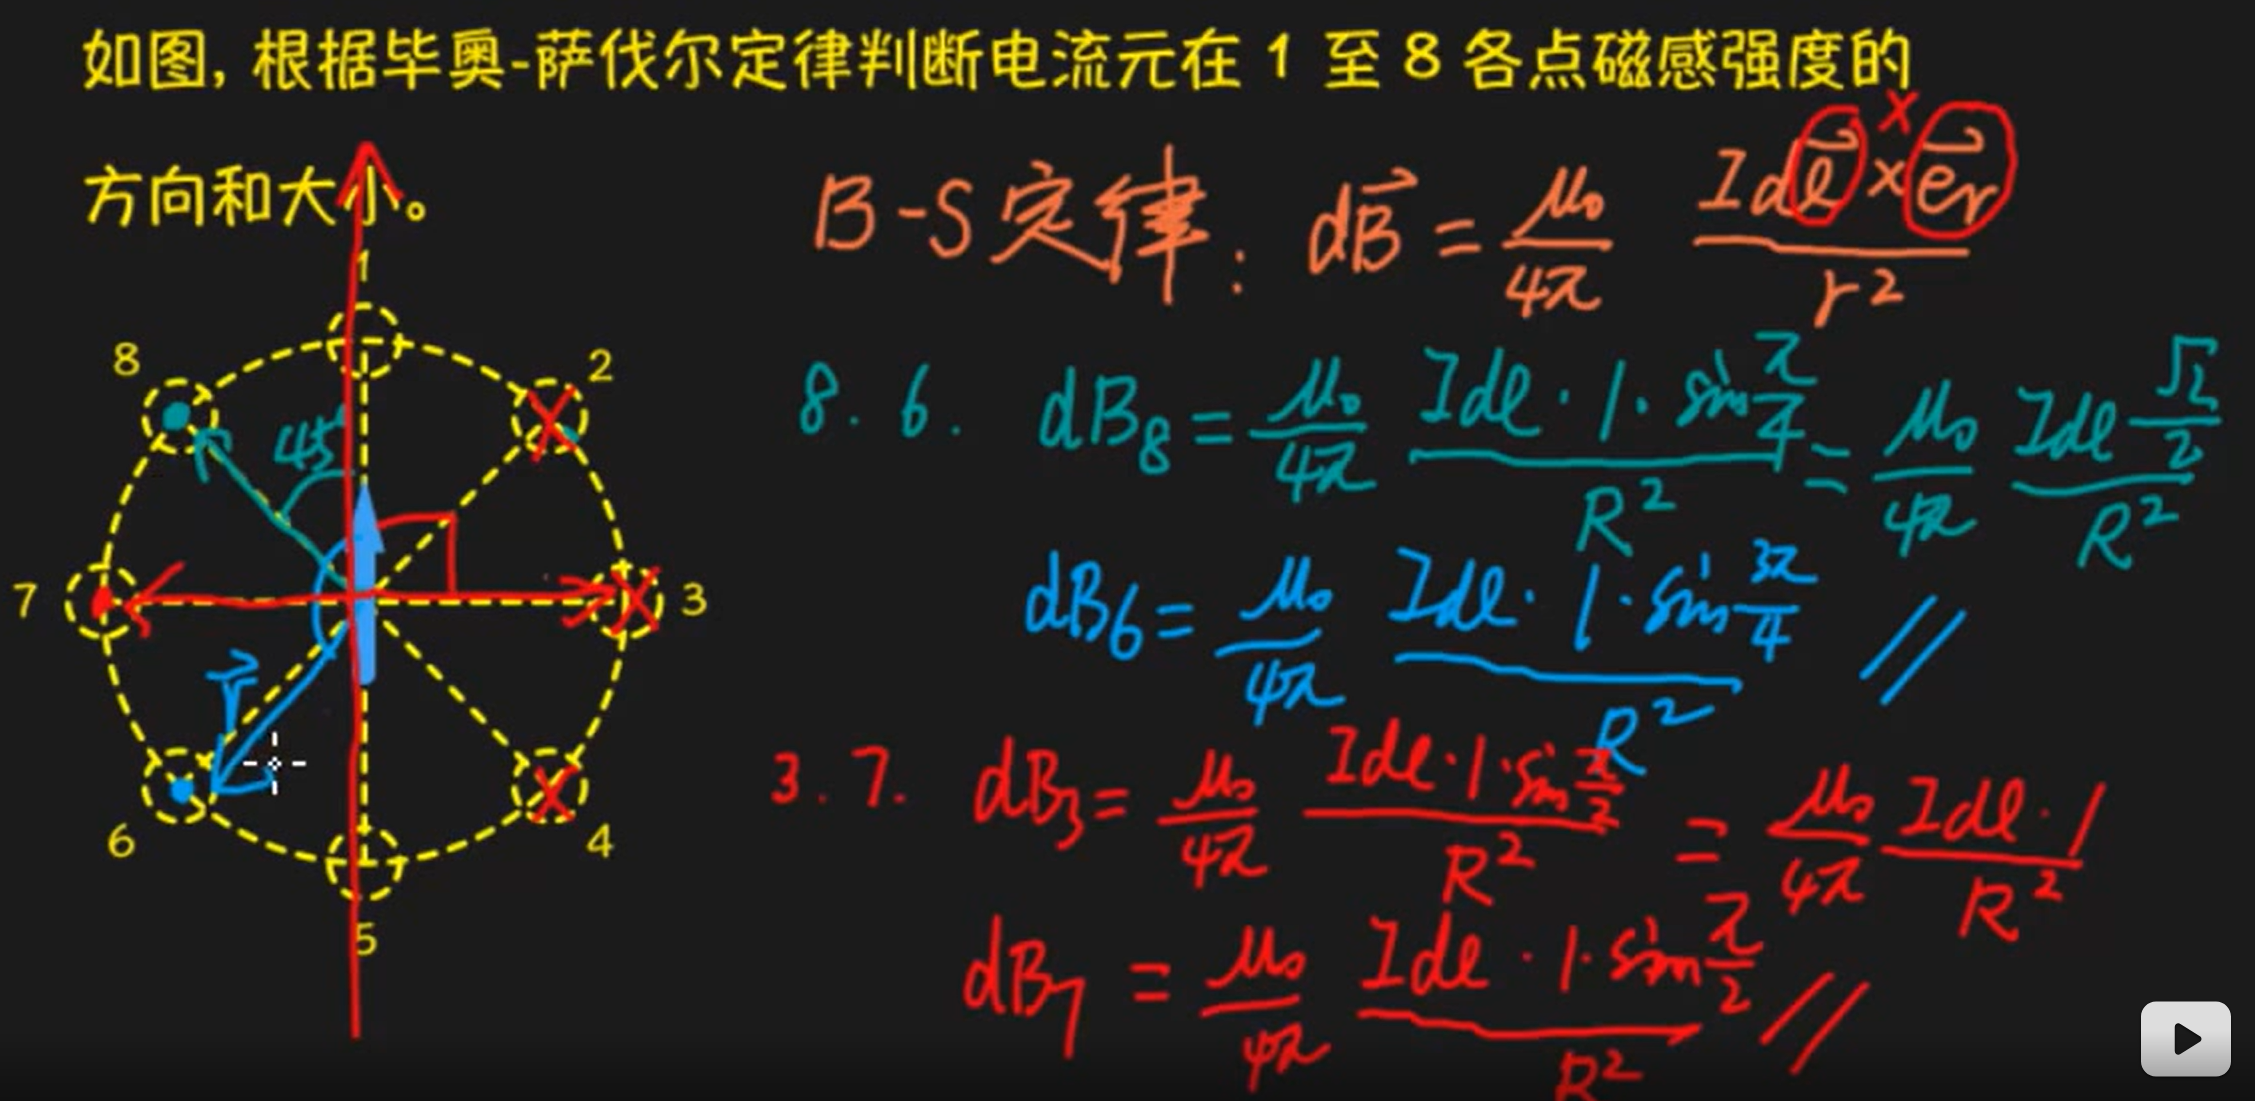 如图, 根据毕奥-萨伐尔定律判断电流元在 1 至 8 各点磁感强度的
方向和大小。
B-S定律: dB⃗ = μ₀/4π Idl⃗ × e⃗r / r²
×
1
8
2
45°
7
3
r⃗
6
4
5
8. 6. dB₈ = μ₀/4π Idl · 1 · sin π/4 / R² = μ₀/4π Idl √2/2 / R²
dB₆ = μ₀/4π Idl · 1 · sin 3π/4 / R² //
3. 7. dB₃ = μ₀/4π Idl · 1 · sin π/2 / R² = μ₀/4π Idl · 1 / R²
dB₇ = μ₀/4π Idl · 1 · sin π/2 / R² //